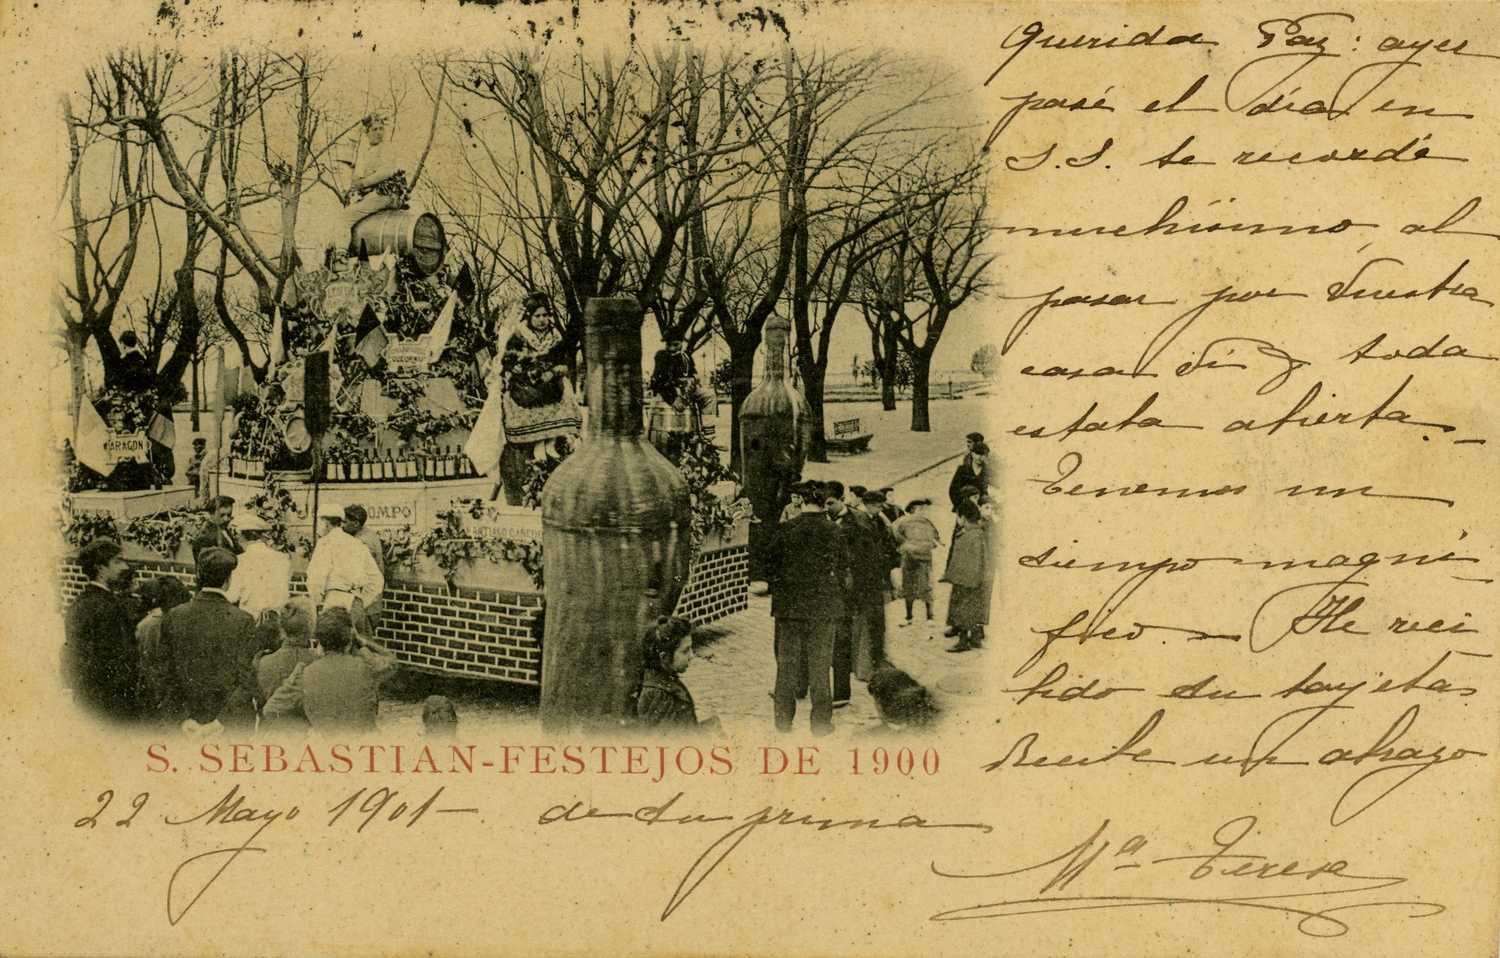 Querida Paz: ayer
pasé el día en
S.S. te recordé
muchísimo, al
pasar por vuestra
casa vi q toda
estaba abierta.-
Tenemos un
tiempo magní
fico.- He reci
bido tu tarjeta
Recibe un abrazo
de tu prima
Mª Teresa
22 Mayo 1901-
S. SEBASTIAN-FESTEJOS DE 1900
ARAGON